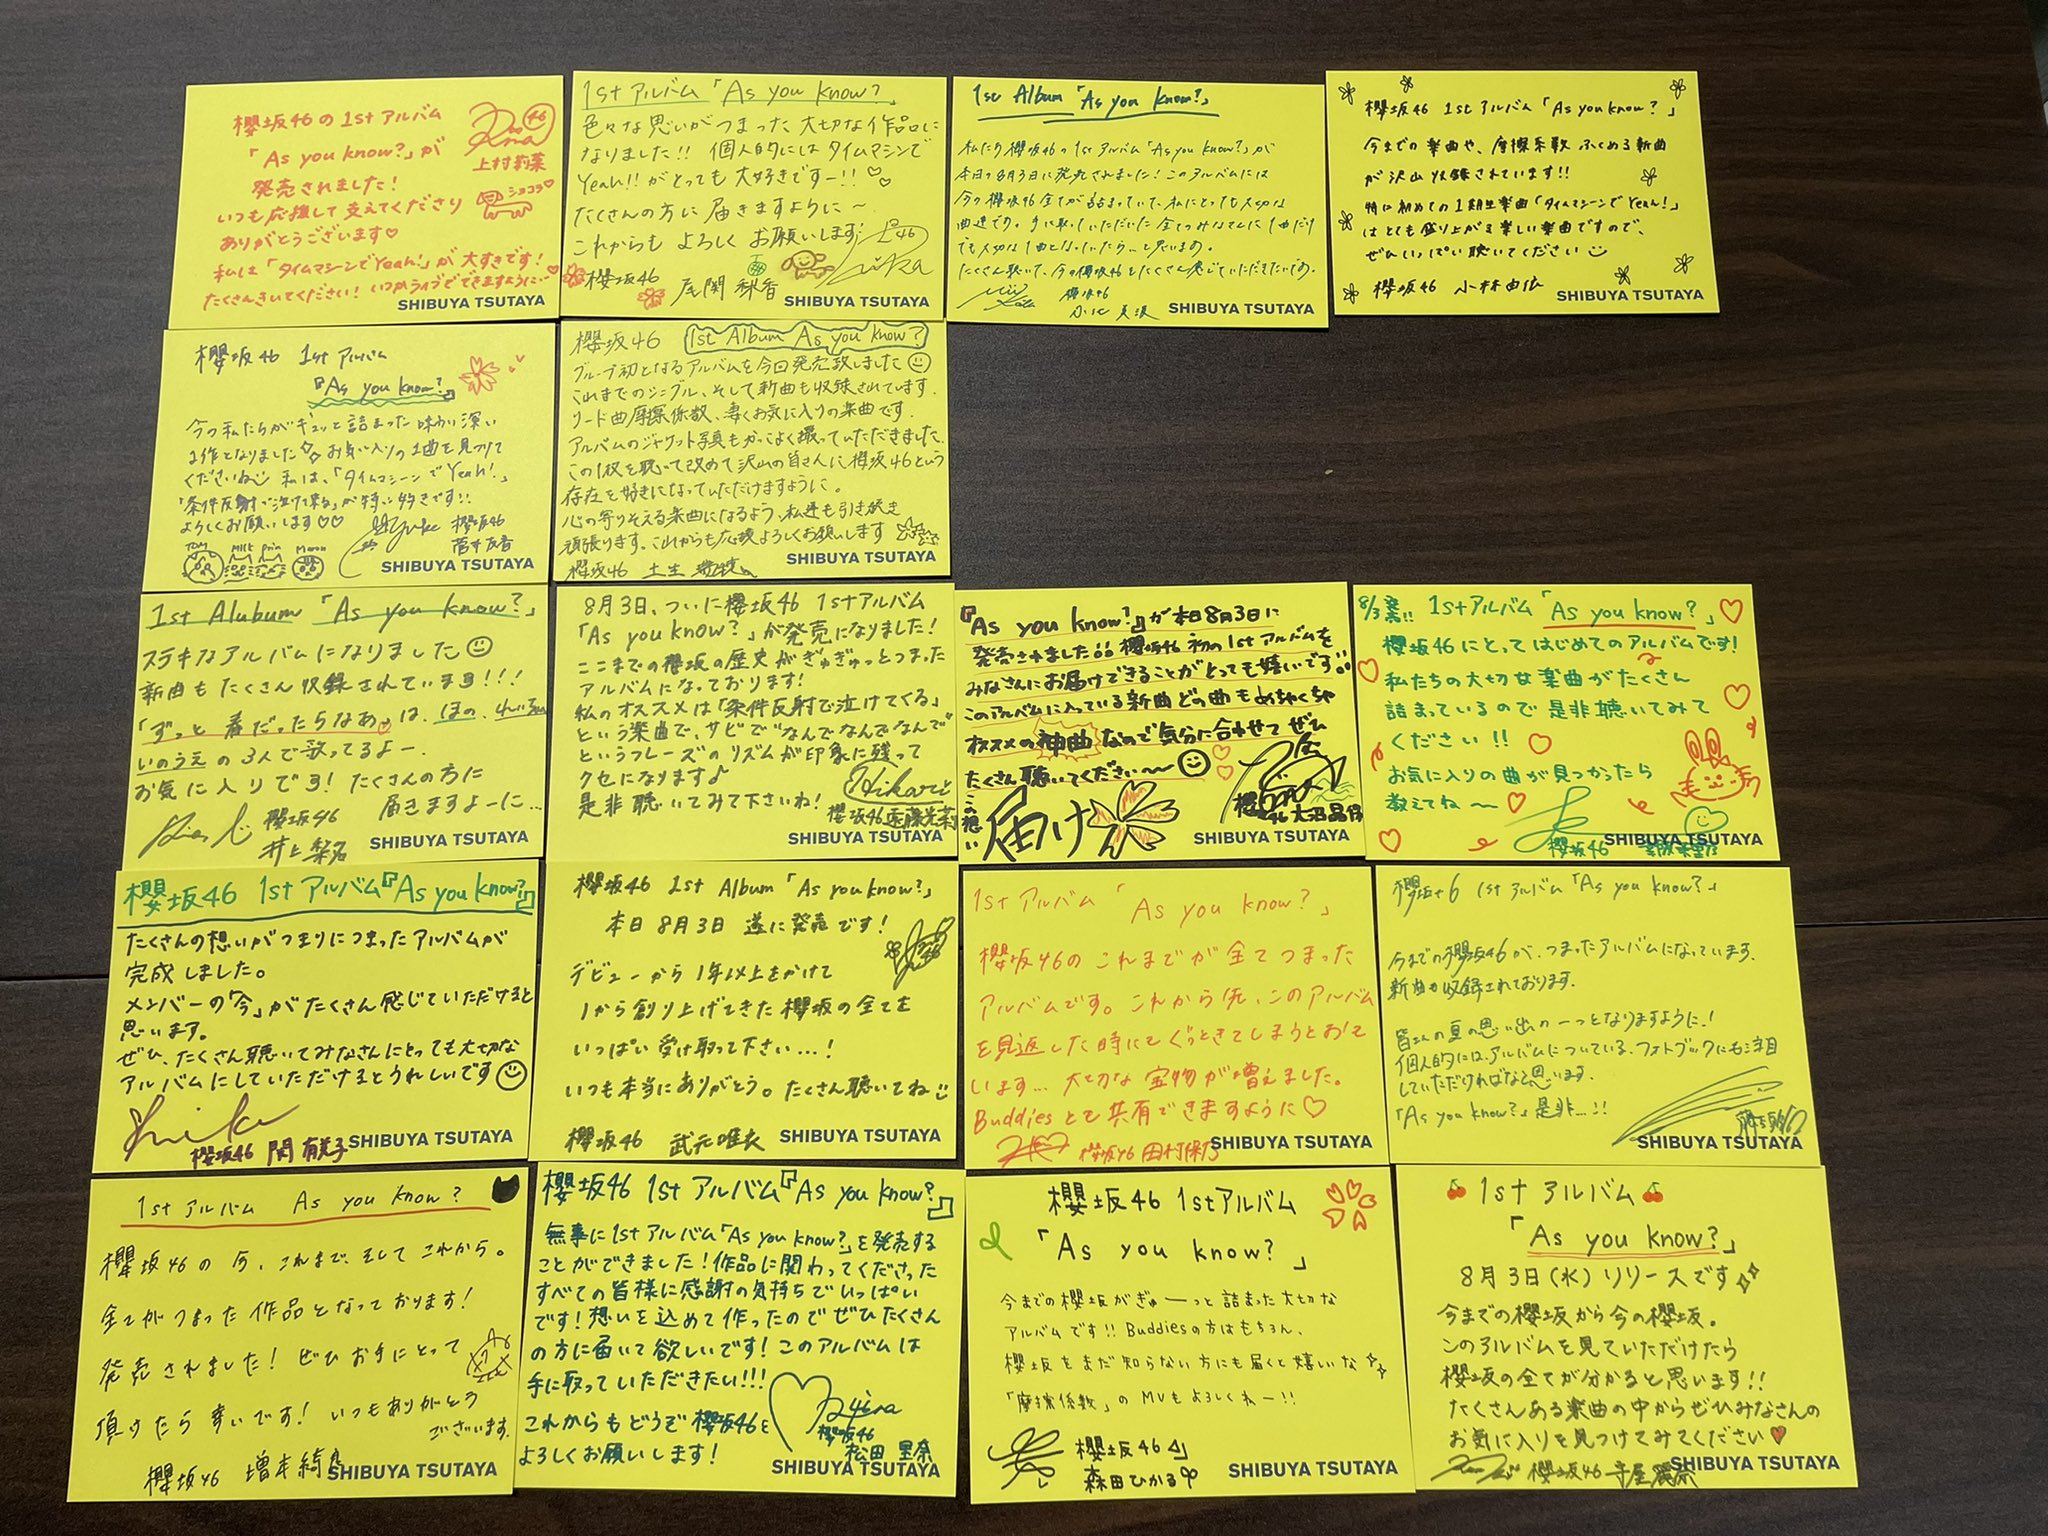 櫻坂46の1stアルバム
「As you know?」が
発売されました!
いつも応援して支えてくださり
ありがとうございます♡
私は「タイムマシーンでYeah!」が大すきです!
たくさんきいてください! いつかライブでできますように…
46
上村莉菜
ショコラ♡
SHIBUYA TSUTAYA
1stアルバム「As you know?」
色々な思いがつまった大切な作品に
なりました!! 個人的にはタイムマシンで
Yeah!!がとっても大好きですー!!♡♡
たくさんの方に届きますように〜
これからもよろしくお願いします
櫻坂46 尾関 梨香
SHIBUYA TSUTAYA
1st Album「As you know?」
私たち櫻坂46の1stアルバム「As you know?」が
本日8月3日に発売されました!このアルバムには
今の櫻坂46全てが詰まっていて、私にとっても大切な
たくさん聴いて、今の櫻坂46をたくさん感じていただきたいです。
櫻坂46
小池 美波
SHIBUYA TSUTAYA
櫻坂46 1stアルバム「As you know?」
今までの楽曲や、摩擦系数ふくめる新曲
が沢山収録されています!!
特に初めての1期生楽曲「タイムマシーンでYeah!」
はとても盛り上がる楽しい楽曲ですので、
ぜひいっぱい聴いてください
櫻坂46 小林由依
SHIBUYA TSUTAYA
櫻坂46 1stアルバム
『As you know?』
今の私たちがギュッと詰まった味わい深い
1作となりました お気に入りの1曲を見つけて
くださいね 私は、「タイムマシーンでYeah!」
「条件反射で泣けて来る」が特に好きです!!
よろしくお願いします♡♡
櫻坂46
菅井友香
Milk Prin Maron
SHIBUYA TSUTAYA
櫻坂46 1st Album As you know?
グループ初となるアルバムを今回発売致しました
これまでのシングル、そして新曲も収録されています。
リード曲摩擦係数、凄くお気に入りの楽曲です。
アルバムのジャケット写真もかっこよく撮っていただきました。
この1枚を聴いて改めて沢山の皆さんに櫻坂46という
存在を好きになっていただけますように。
心の寄りそえる楽曲になるよう、私達も引き続き
頑張ります。これからも応援よろしくお願いします
櫻坂46 土生 瑞穂
SHIBUYA TSUTAYA
1st Alubum「As you know?」
ステキなアルバムになりました
新曲もたくさん収録されています!!!
「ずっと春だったらなあ」は、ほの、
いのうえの3人で歌ってるよー。
お気に入りです!たくさんの方に
届きますよーに…
櫻坂46
井上梨名
SHIBUYA TSUTAYA
8月3日、ついに櫻坂46 1stアルバム
「As you know?」が発売になりました!
ここまでの櫻坂の歴史がぎゅぎゅっとつまった
アルバムになっております!
私のオススメは「条件反射で泣けてくる」
という楽曲で、サビで"なんでなんでなんで"
というフレーズのリズムが印象に残って
クセになります♪
是非聴いてみて下さいね!
Hikari
櫻坂46遠藤光莉
SHIBUYA TSUTAYA
『As you know?』が本日8月3日に
発売されました!!櫻坂46初の1stアルバムを
みなさんにお届けできることがとっても嬉いです!!
このアルバムに入っている新曲どの曲もめちゃくちゃ
オススメの神曲なので気分に合わせてぜひ
たくさん聴いてください〜
この想い届け
櫻坂46大沼晶保
SHIBUYA TSUTAYA
8/3発売!! 1stアルバム「As you know?」♡
櫻坂46にとってはじめてのアルバムです!
私たちの大切な楽曲がたくさん
詰まっているので是非聴いてみて
ください!!
お気に入りの曲が見つかったら
教えてね〜♡
櫻坂46 幸阪茉里乃
SHIBUYA TSUTAYA
櫻坂46 1stアルバム『As you know?』
たくさんの想いがつまりにつまったアルバムが
完成しました。
メンバーの「今」がたくさん感じていただけると
思います。
ぜひ、たくさん聴いてみなさんにとっても大切な
アルバムにしていただけるとうれしいです
櫻坂46 関 有美子
SHIBUYA TSUTAYA
櫻坂46 1st Album「As you know?」
本日8月3日 遂に発売です!
デビューから1年以上をかけて
1から創り上げてきた櫻坂の全てを
いっぱい受け取って下さい…!
いつも本当にありがとう。たくさん聴いてね
櫻坂46 武元唯衣
SHIBUYA TSUTAYA
1stアルバム「As you know?」
櫻坂46のこれまでが全てつまった
アルバムです。これから先、このアルバム
を見返した時にもぐっときてしまうとおもて
います… 大切な宝物が増えました。
Buddiesとも共有できますように♡
櫻坂46 田村保乃
SHIBUYA TSUTAYA
櫻坂46 1stアルバム「As you know?」
今までの櫻坂46が、つまったアルバムになっています。
新曲も収録されております。
皆さんの夏の思い出の一つとなりますように!
個人的には、アルバムについている、フォトブックにも注目
していただければなと思います。
「As you know?」是非…!!
SHIBUYA TSUTAYA
1stアルバム As you know?
櫻坂46の今、これまで、そしてこれから。
全てがつまった作品となっております!
発売されました!ぜひお手にとって
頂けたら幸いです!いつもありがとう
ございます。
櫻坂46 増本綺良
SHIBUYA TSUTAYA
櫻坂46 1stアルバム『As you know?』
無事に1stアルバム「As you know?」を発売する
ことができました!作品に関わってくださった
すべての皆様に感謝の気持ちでいっぱい
です!想いを込めて作ったのでぜひたくさん
の方に届いて欲しいです!このアルバムは
手に取っていただきたい!!!
これからもどうぞ櫻坂46を
よろしくお願いします!
櫻坂46
松田 里奈
SHIBUYA TSUTAYA
櫻坂46 1stアルバム
「As you know?」
今までの櫻坂がぎゅーっと詰まった大切な
アルバムです!! Buddiesの方はもちろん、
櫻坂をまだ知らない方にも届くと嬉いな
「摩擦係数」のMVもよろしくねー!!
櫻坂46
森田ひかる
SHIBUYA TSUTAYA
1stアルバム
「As you know?」
8月3日(水)リリースです
今までの櫻坂から今の櫻坂。
このアルバムを見ていただけたら
櫻坂の全てが分かると思います!!
たくさんある楽曲の中からぜひみなさんの
お気に入りを見つけてみてください♥
櫻坂46 守屋麗奈
SHIBUYA TSUTAYA